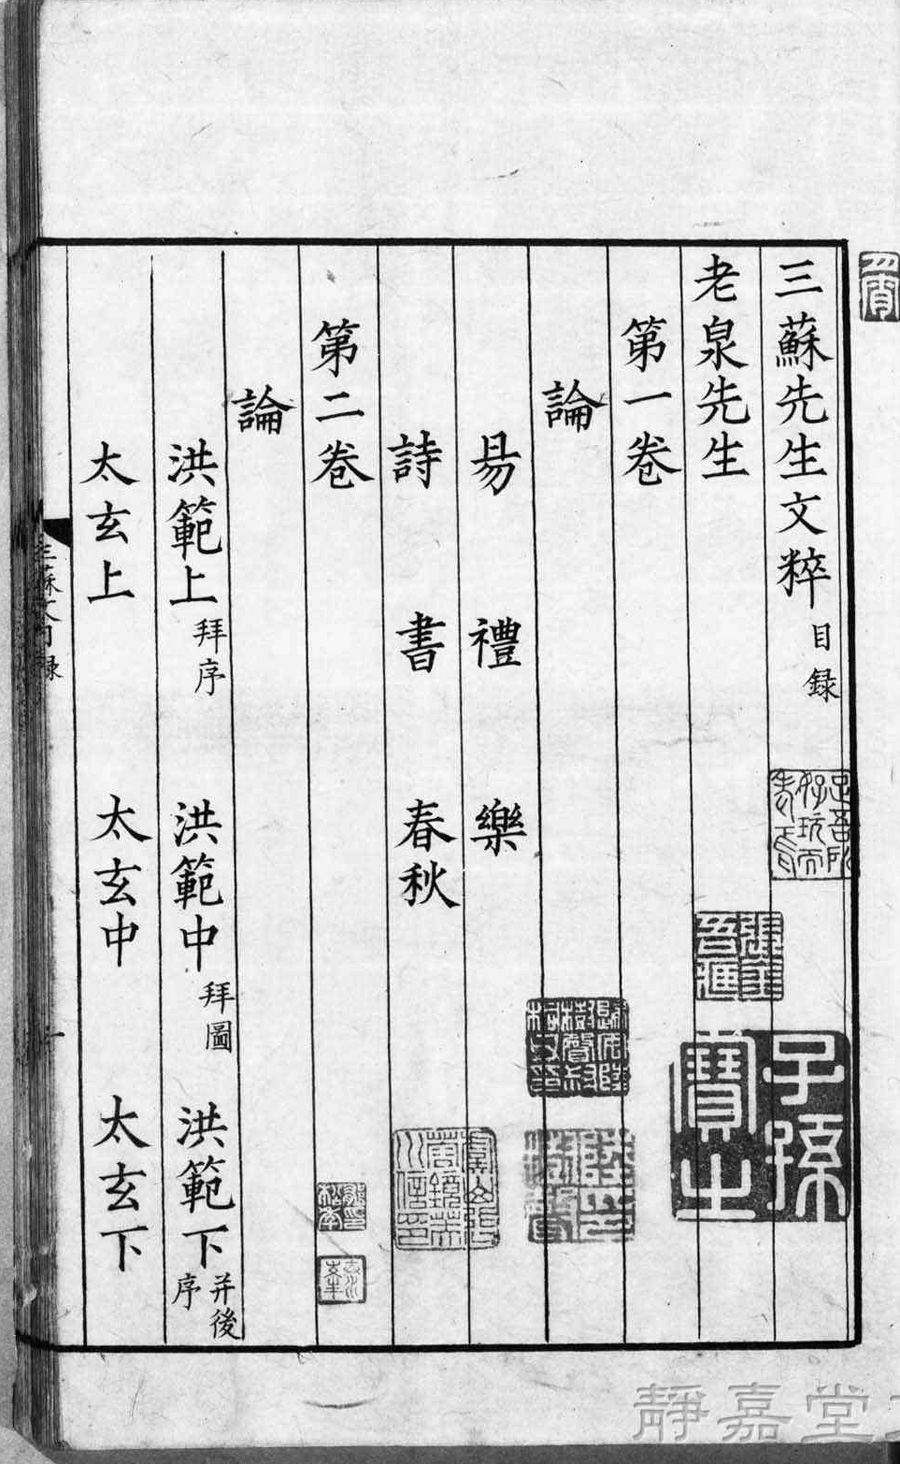 三蘇先生文粹目録
老泉先生
第一卷
論
易 禮 樂
詩 書 春秋
第二卷
論
洪範上拜序 洪範中拜圖 洪範下并後序
太玄上 太玄中 太玄下
子孫寶之
靜嘉堂